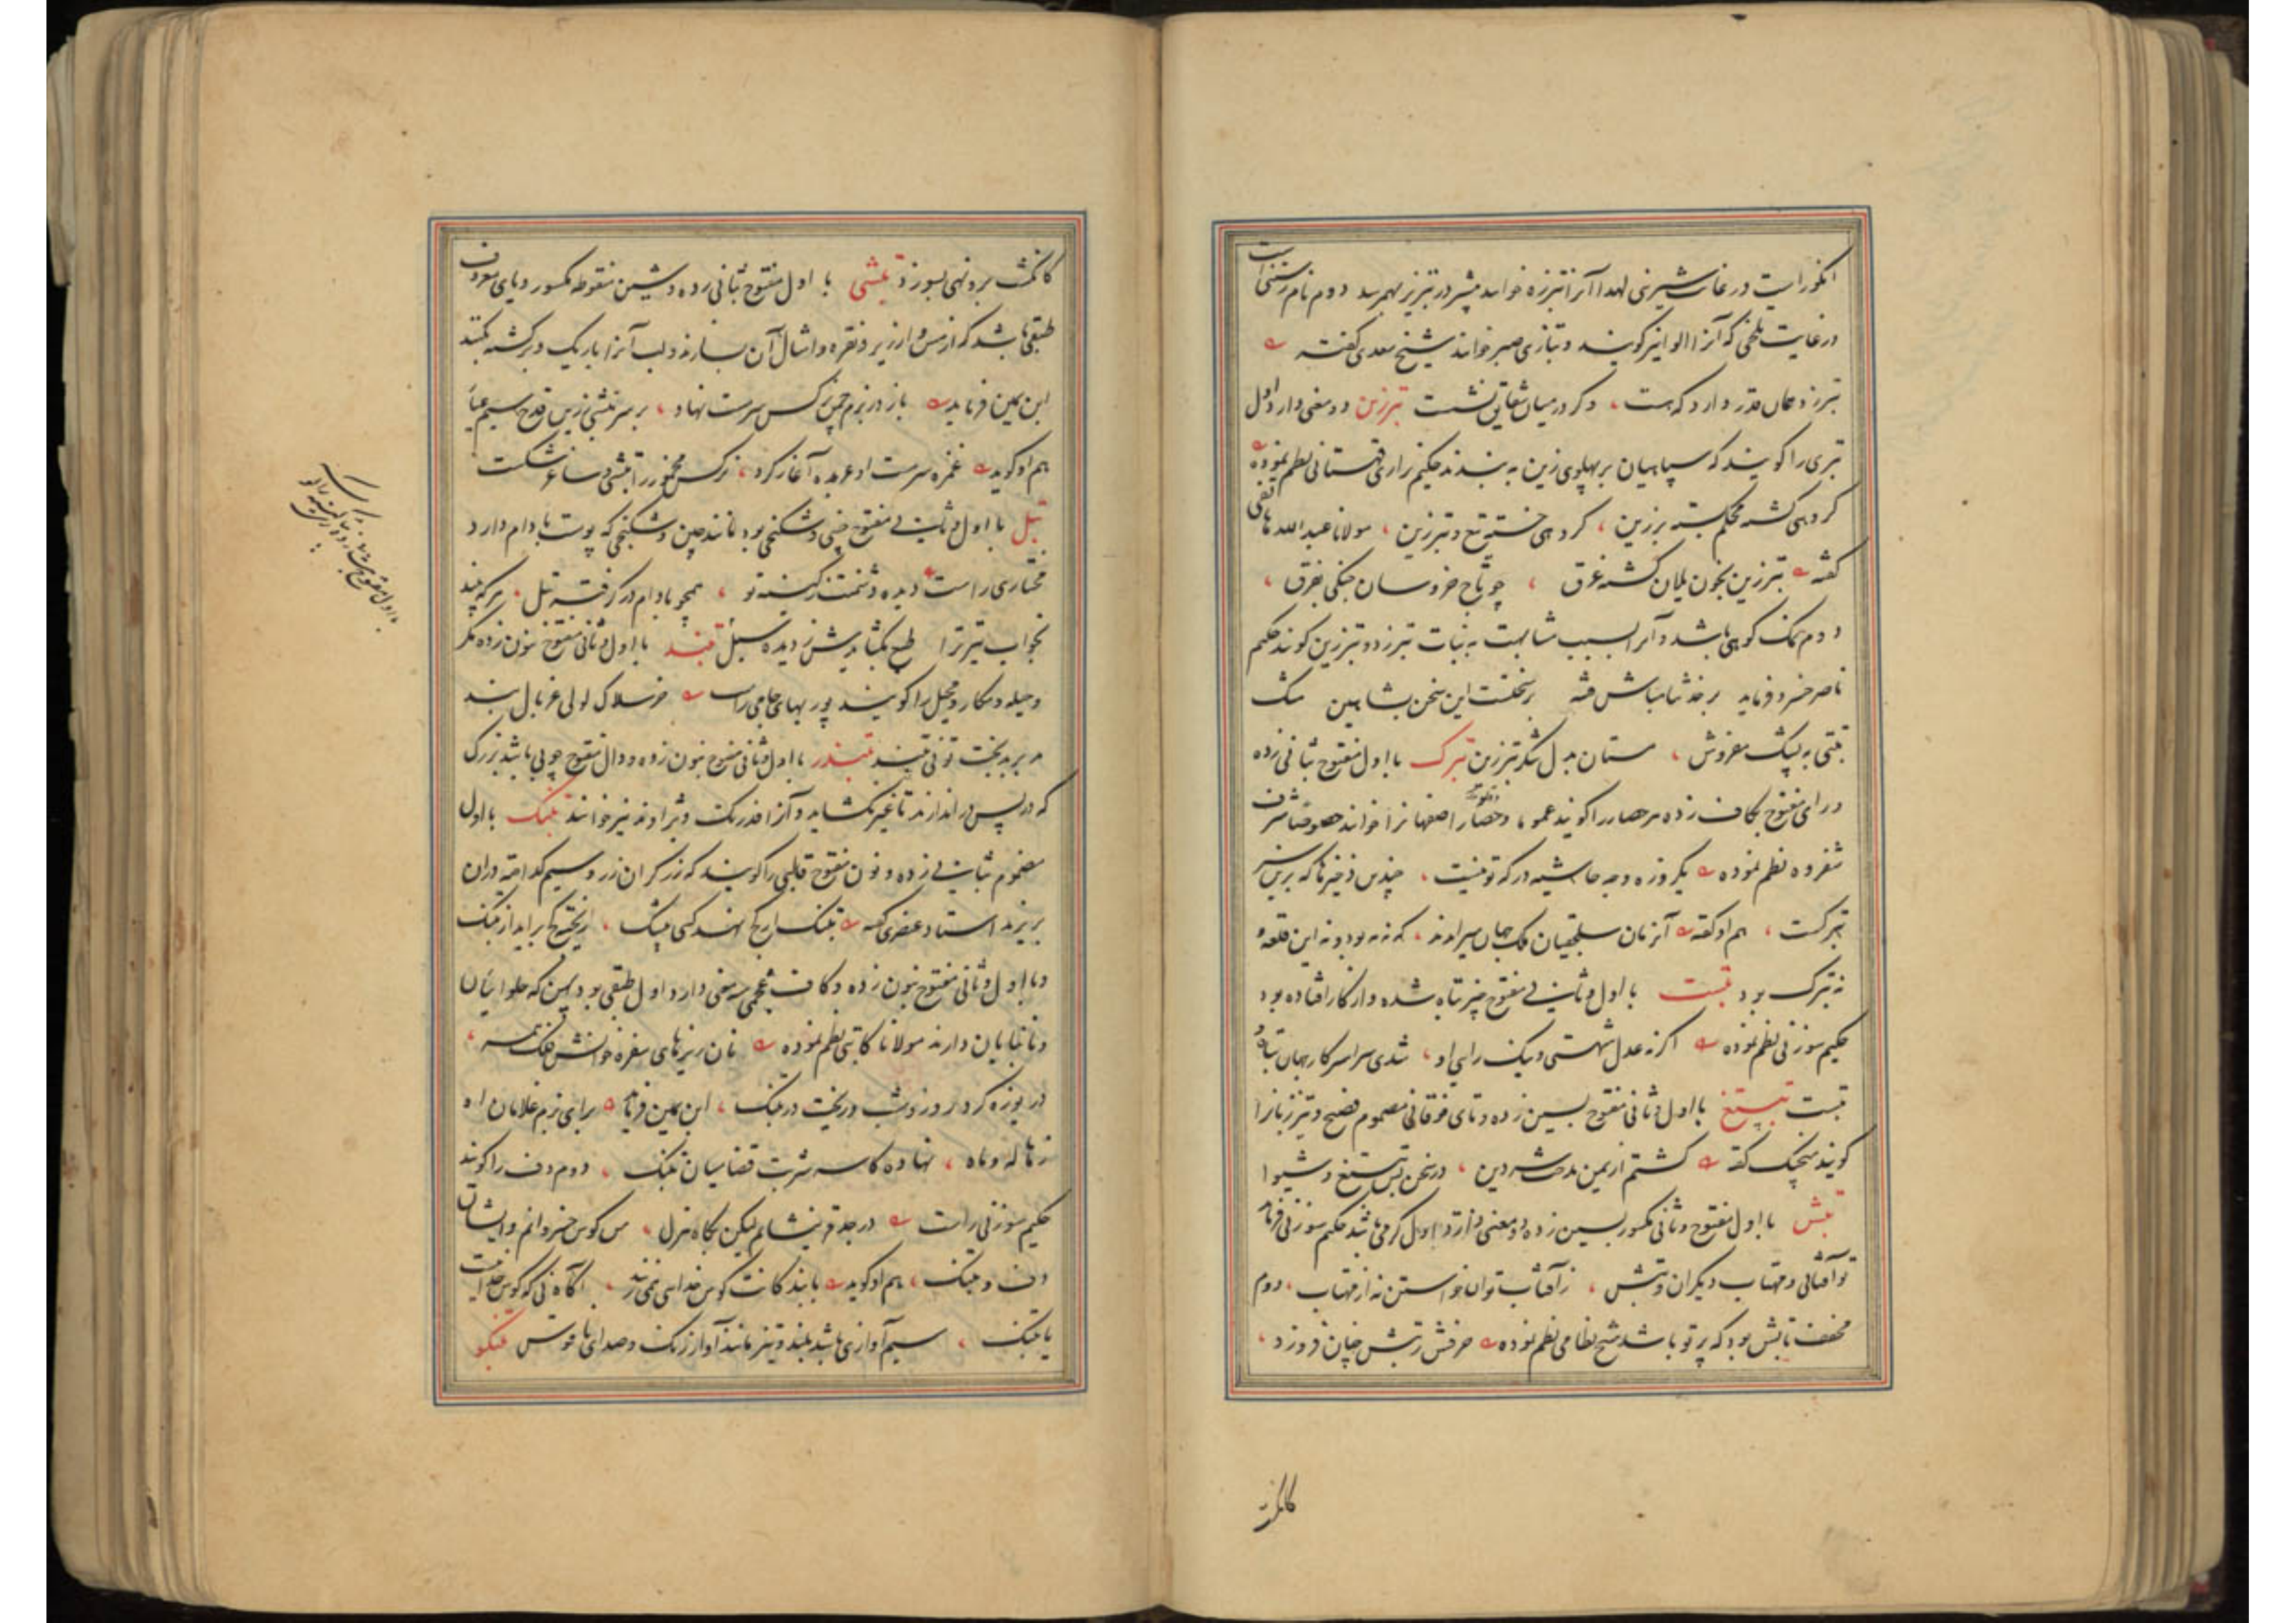 انکوراست در غایت شیرینی لهذا آنرا تبرزه خوانند بیشتر در تبریز بهم رسد دوم نام رستنی است
در غایت تلخی که آنرا الوا نیز گویند و بتازی صبر خوانند شیخ سعدی گفته
تبرزد همان قدر دارد که هست ، وگر در میان شقایق نشست تبرزین دو معنی دارد اول
تبری را گویند که سپاهیان بر پهلوی زین به بندند حکیم نزاری قهستانی نظم نموده
گروهی کشته محکم بسته بر زین ، گروهی خسته تیغ و تبرزین ، مولانا عبدالله هاتفی
گفته تبرزین بخون یلان گشته غرق ، چو تاج خروسان جنگی بفرق ،
دوم نمک کوهی باشد و آنرا بسبب مشابهت به نبات تبرزد و تبرزین گویند حکیم
ناصر خسرو فرماید بر خفتست این سخن بشاهین مشک
تبتی به پشک مفروش ، مستان بدل شکر تبرزین تبرک با اول مفتوح بثانی زده
و رای مفتوح بکاف زده هر حصار را گویند عموما و حصار اصفهانرا خوانند خصوصا شرف
شفروه نظم نموده یکروزه وجه حاشیه درگه تو نیست ، چندین ذخیرها که برین سر
تبرکست ، هم او گفته آنزمان سلجقیان ملک جهان میراندند ، که نه به بود و نه این قلعه و
نه تبرک بود تبست با اول و ثانی مفتوح چیز تباه شده و از کار افتاده بود
حکیم سوزنی نظم نموده اگر نه عدل شهستی و نیک رایی او ، شدی سراسر کار جهان تباه و
تبست تبستغ با اول و ثانی مفتوح بسین زده و تای فوقانی مضموم فصیح و تیززبانرا
گویند منجیک گفته گشتم از یمین مدحت شه دین ، در سخن بس تبستغ و شیوا
تبش با اول مفتوح و ثانی مکسور بسین زده دو معنی دارد اول گرمی باشد حکیم سوزنی فرماید
تو آفتابی و مهتاب دیگران و تبش ، ز آفتاب توان خواستن نه از مهتاب ، دوم
مخفف تابش بود که پرتو باشد شیخ نظامی نظم نموده حرفش ز تبش چنان فروزد ،
کانگشت
کانگشت برو نهی بسوزد تبشی با اول مفتوح بثانی زده و شین منقوطه مکسور و یای معروف
طبقی باشد که از مس و ارزیز و نقره و امثال آن بسازند و لب آنرا باریک و برگشته بکنند
ابن یمین فرماید باز در بزم چمن نرگس سرمست نهاد ، بر سر تبشی زرین قدح سیم عیار
هم او گوید غمزه سرمست او عربده آغاز کرد ، نرگس مخمور را تبشی و ساغر شکست
تبل با اول و ثانی مفتوح چینی و شکنجی بود مانند چین و شکنجی که پوست بادام دارد
مختاری راست دیده دشمنت ز کینه تو ، همچو بادام در گرفته تبل ، هر که بیند
بخواب تیر ترا طبع بگشایدش ز دیده سبل تبند با اول و ثانی مفتوح بنون زده مکر
و حیله و مکار و محیل را گویند پور بهای جامی راست خرسلاک لولی غربال بند
مدبر بدبخت تونی تبند تبندر با اول و ثانی مفتوح بنون زده و دال مفتوح چوبی باشد بزرگ
که در پس در اندازند تا غیر نگشاید و آنرا فدرنگ و نیز خوانند تبنک با اول
مضموم بثانی زده و نون مفتوح قالبی را گویند که زرگران زر و سیم گداخته در آن
بریزند استاد عنصری گفته
و با اول و ثانی مفتوح بنون زده و کاف عجمی سه معنی دارد اول طبقی بود پهن که حلوائیان
و نانبایان دارند مولانا کاتبی نظم نموده نان ریزهای سفره خوانش فلک همه ،
دریوزه کرد روز و شب و ریخت در تبنگ ، ابن یمین فرماید برای بزم غلامان او
ز هاله و ماه ، نهاده کاسه شربت فضاییان تبنگ ، دوم دف را گویند
حکیم سوزنی راست در جدم لیکن بگاه هزل ، من کوس خسروانم و ایشان
دف و تبنگ ، هم او گوید با بند کانت کوس خدایی نمی زند ،
یا تبنگ ، سیم آوازی باشد بلند و تیز مانند آواز زنگ و صدای ناقوس تبنگو